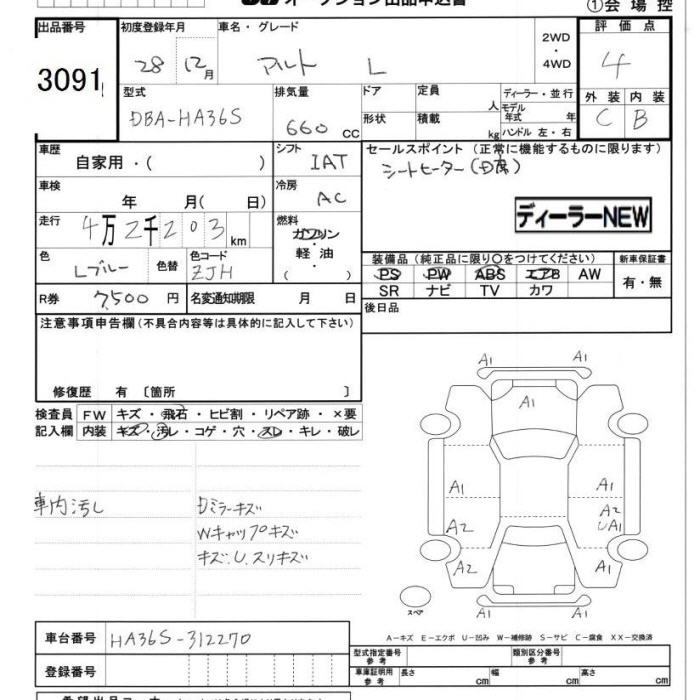 オークション出品申込書
①会場控
出品番号 初度登録年月 車名・グレード 2WD・4WD 評価点
3091 28 12月 アルト L 4
型式 排気量 ドア 定員 人 ディーラー・並行 外装 内装
DBA-HA36S 660 cc 形状 積載 kg モデル年式 年 ハンドル 左・右 C B
車歴 自家用・( ) シフト IAT セールスポイント (正常に機能するものに限ります)
シートヒーター(D席)
車検 年 月( 日) 冷房 AC
ディーラーNEW
走行 4万2千203km 燃料 ガソリン・軽油・( )
色 Lブルー 色替 色コード ZJH
装備品 (純正品に限り○をつけてください) 新車保証書
PS PW ABS エアB AW 有・無
SR ナビ TV カワ
R券 7,500円 名変通知期限 月 日 後日品
注意事項申告欄 (不具合内容等は具体的に記入して下さい)
修復歴 有 〔箇所 〕
検査員 FW キズ・飛石・ヒビ割・リペア跡・×要
記入欄 内装 キズ・汚レ・コゲ・穴・スレ・キレ・破レ
車内汚し Dミラーキズ
Wキャップキズ
キズ.U.スリキズ
A1 A1
A1
A1 A1
A2 A2
UA1
A2 A1
A1 A1
スペア
A-キズ E-エクボ U-凹み W-補修跡 S-サビ C-腐食 XX-交換済
車台番号 HA36S-312270
型式指定番号 参考 類別区分番号 参考
登録番号 車庫証明用 参考 長さ cm 幅 cm 高さ cm